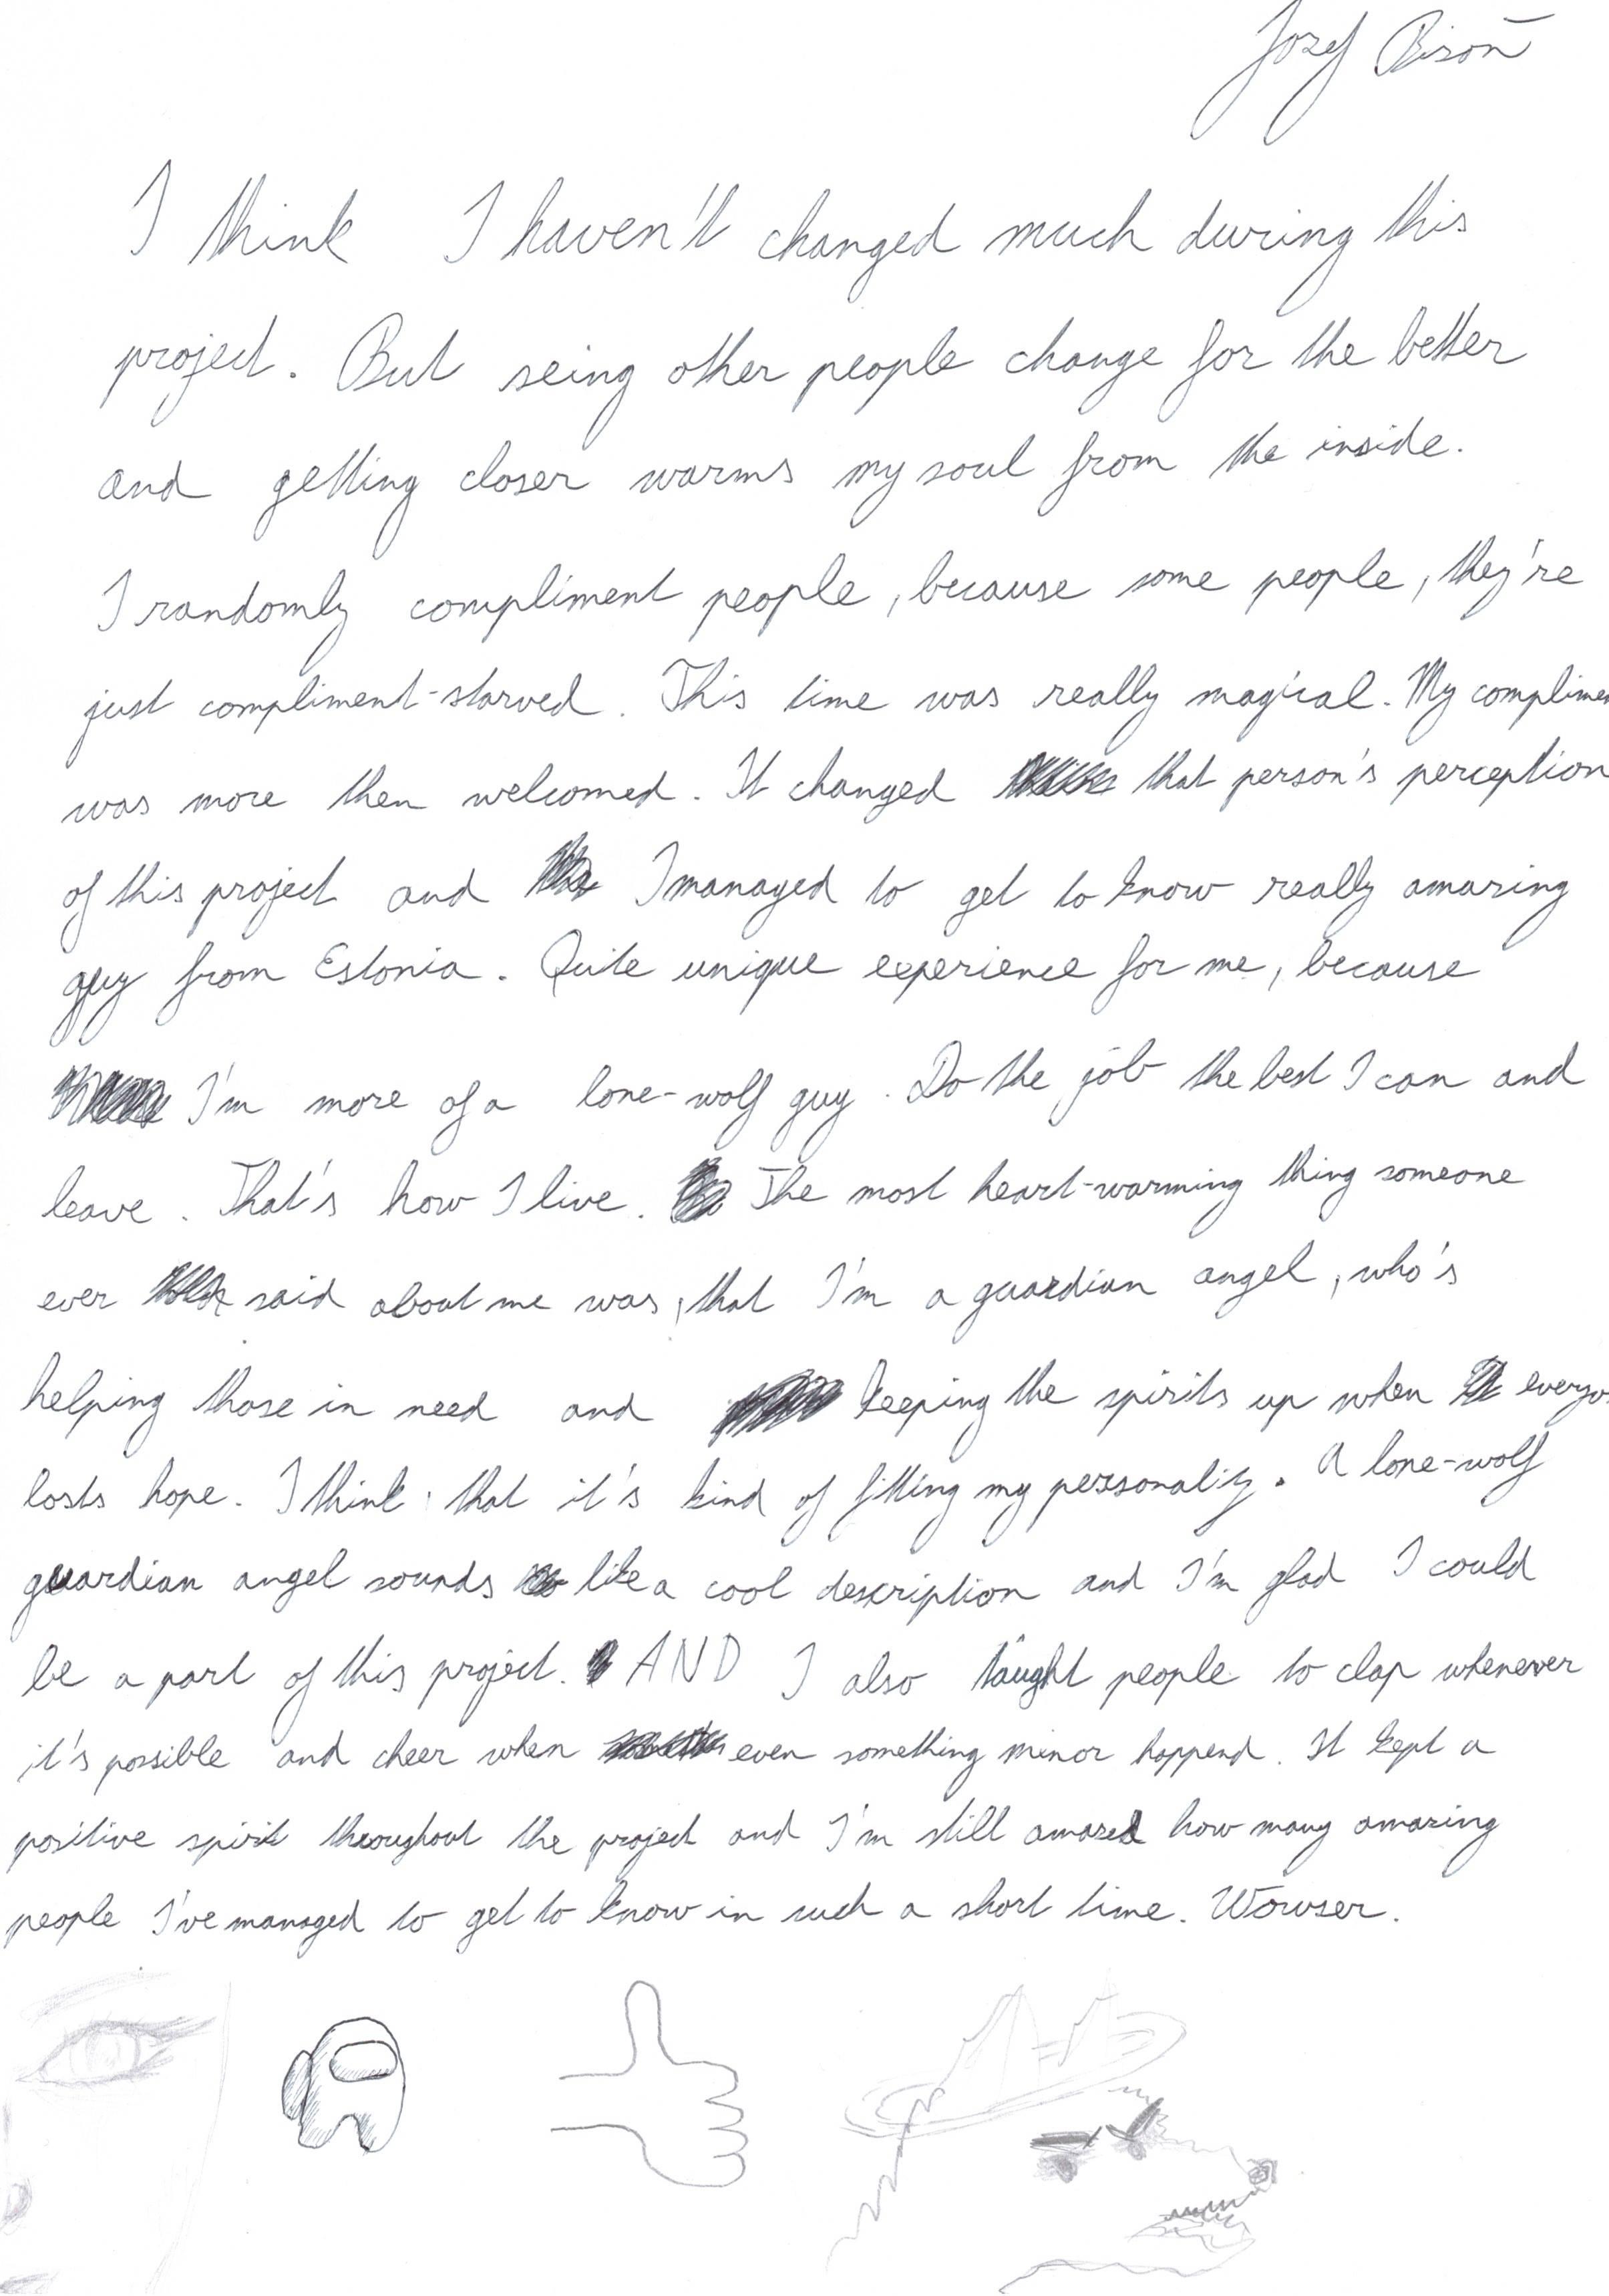 Jozef Bisoň
I think I haven't changed much during this
project. But seing other people change for the better
and getting closer warms my soul from the inside.
I randomly compliment people, because some people, they're
just compliment-starved. This time was really magical. My complimen
was more then welcomed. It changed that person's perception
of this project and I managed to get to know really amazing
guy from Estonia. Quite unique experience for me, because
I'm more of a lone-wolf guy. Do the job the best I can and
leave. That's how I live. The most heart-warming thing someone
ever said about me was, that I'm a guardian angel, who's
helping those in need and keeping the spirits up when everyo
losts hope. I think, that it's kind of fitting my personality. A lone-wolf
guardian angel sounds like a cool description and I'm glad I could
be a part of this project. AND I also taught people to clap whenever
it's possible and cheer when even something minor happend. It kept a
positive spirit throughout the project and I'm still amazed how many amazing
people I've managed to get to know in such a short time. Wowser.